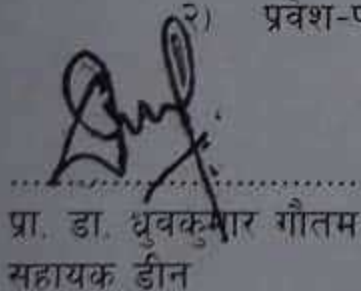 २) प्रवेश-
प्रा. डा. ध्रुवकुमार गौतम
सहायक डीन